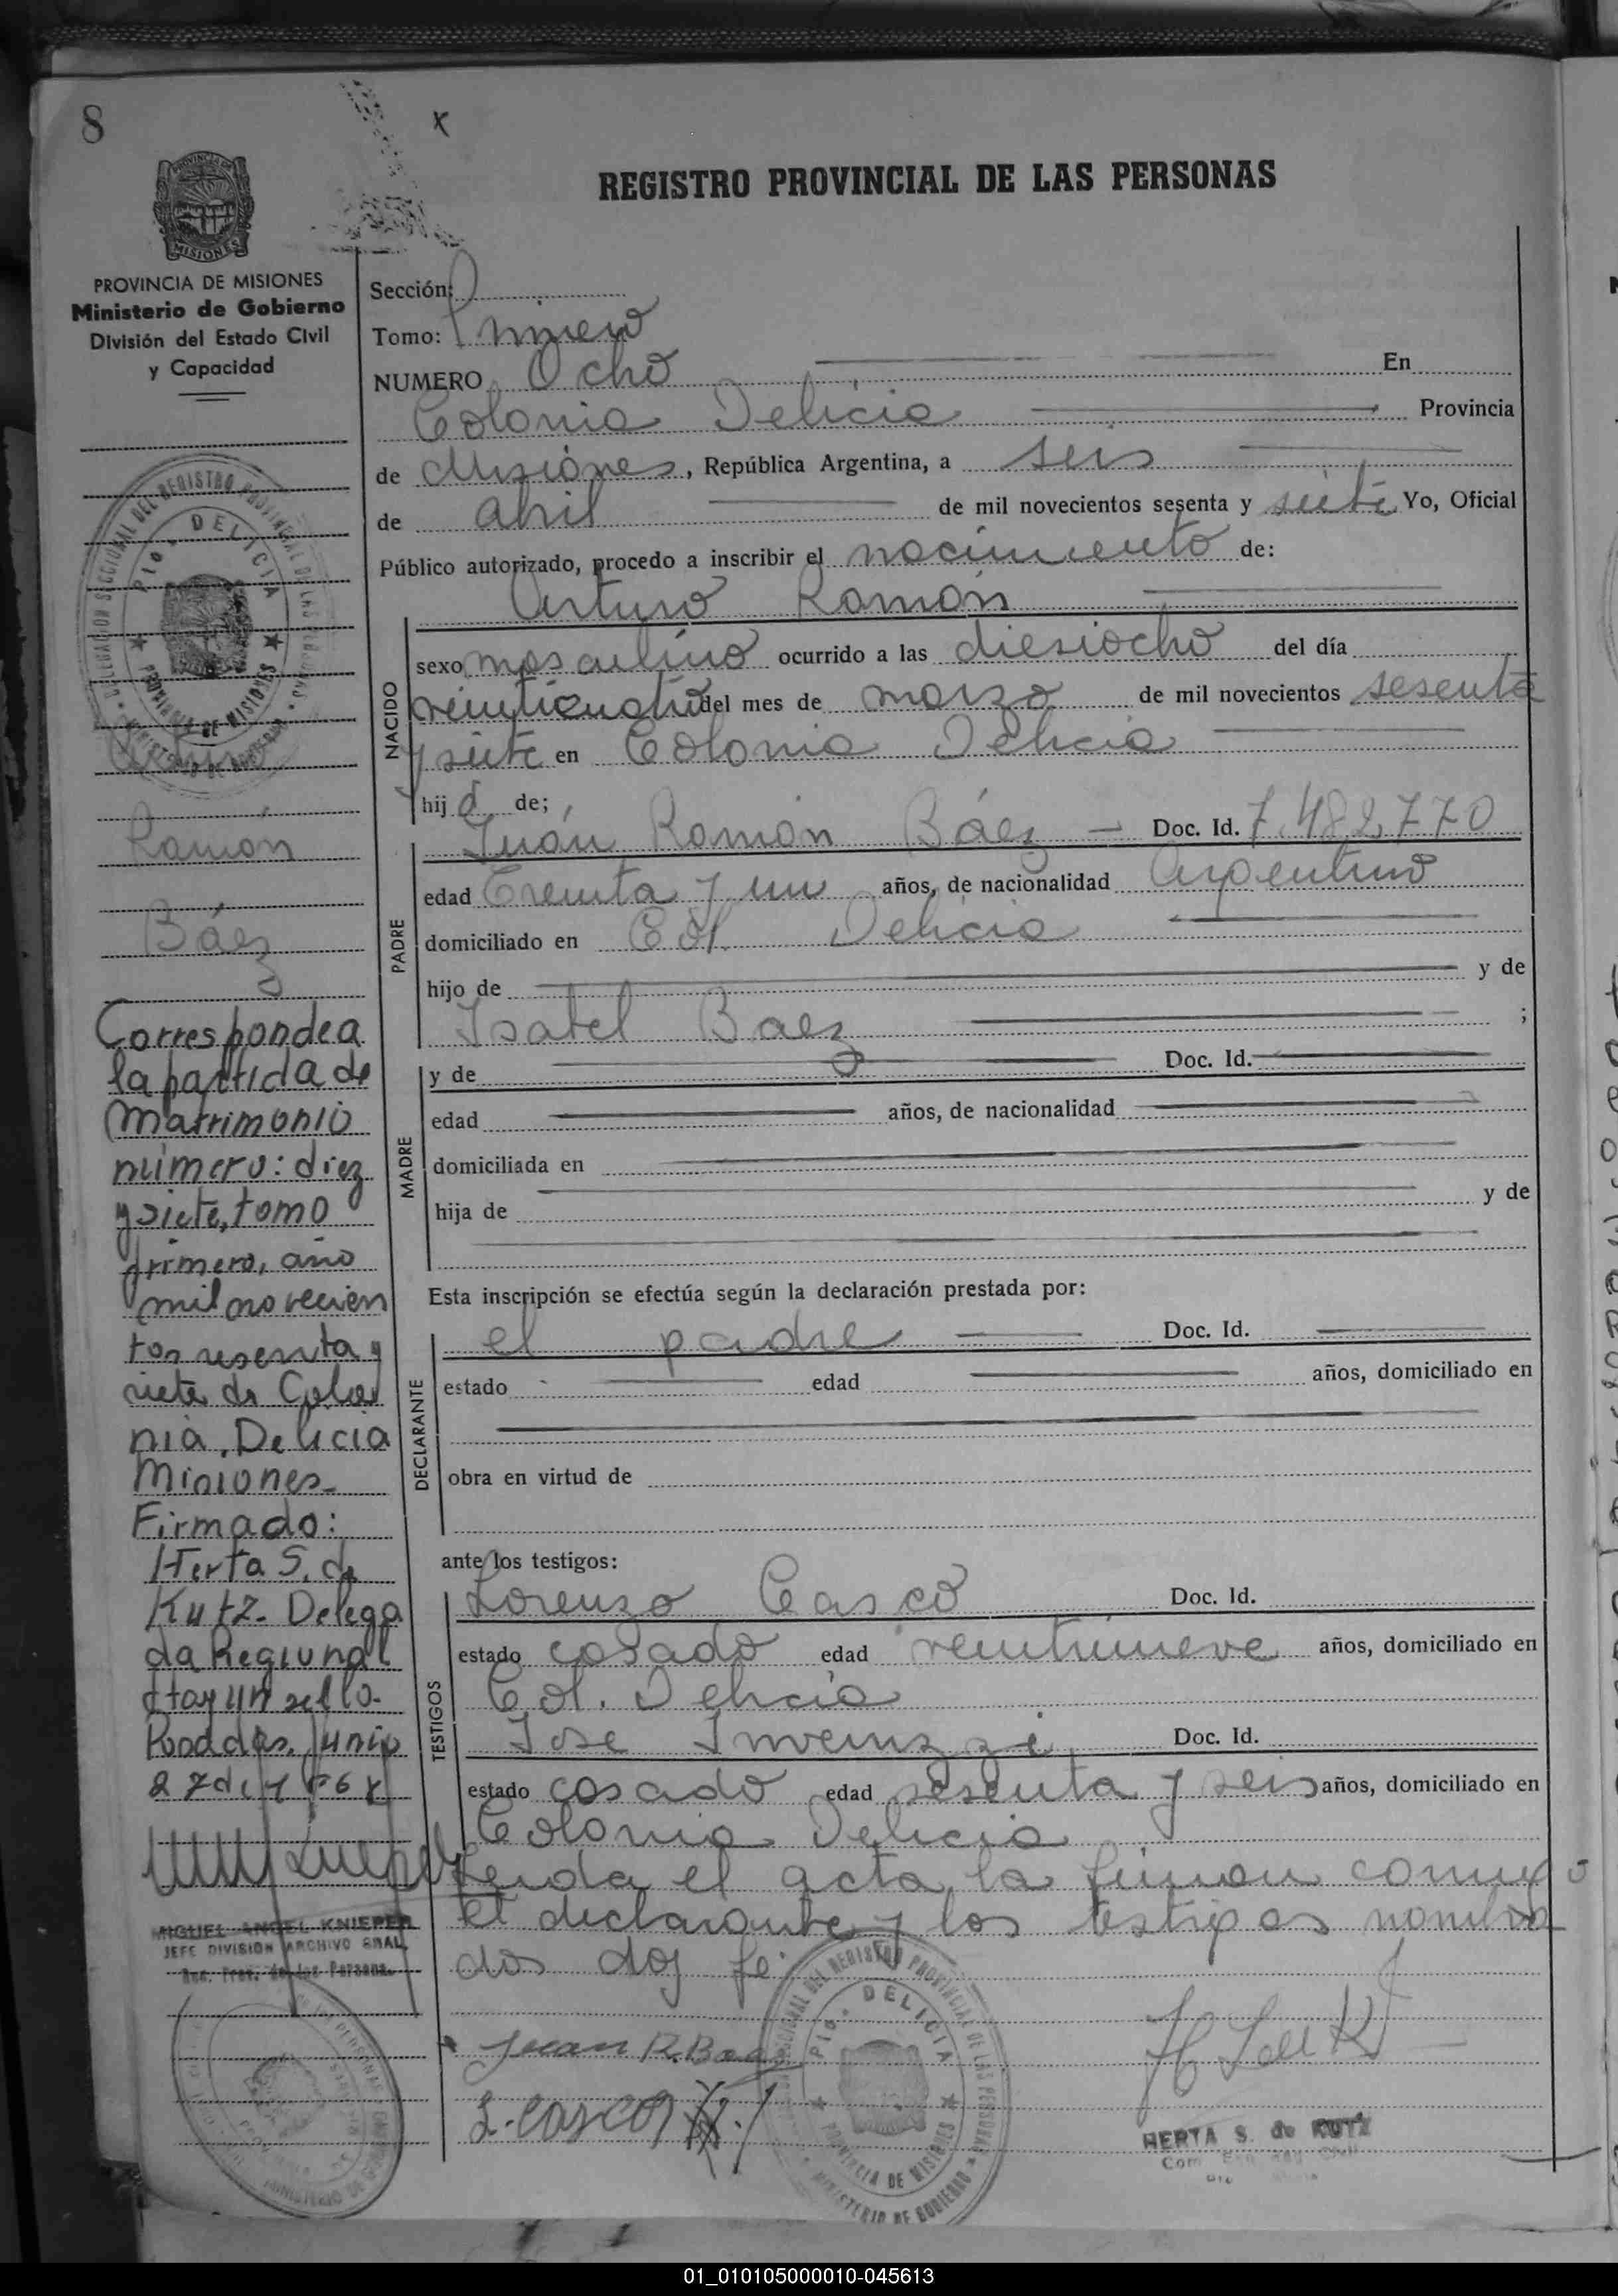 8
x
REGISTRO PROVINCIAL DE LAS PERSONAS
PROVINCIA DE MISIONES
Ministerio de Gobierno
División del Estado Civil
y Capacidad
Arturo
Ramón
Báez
Corresponde a
la partida de
Matrimonio
número: diez
y siete, tomo
primero, año
mil novecien
tos sesenta y
siete de Colo
nia, Delicia
Misiones-
Firmado:
Herta S. de
Kutz- Delega
da Regional
Hay un sello-
Posadas, Junio
27 de
MIGUEL ANGEL KNIEPER
JEFE DIVISION ARCHIVO GRAL.
Reg. Prov. de las Personas
Sección:
Tomo: Primero
NUMERO Ocho En
Colonia Delicia Provincia
de Misiones, República Argentina, a seis
de abril de mil novecientos sesenta y siete Yo, Oficial
Público autorizado, procedo a inscribir el nacimiento de:
Arturo Ramón
NACIDO
sexo masculino ocurrido a las diesiocho del día
veinticuatro del mes de marzo de mil novecientos sesenta
y siete en Colonia Delicia
hijo de;
PADRE
Juán Ramón Báez - Doc. Id. 7.482.770
edad Treinta y un años, de nacionalidad Argentino
domiciliado en Col. Delicia
hijo de y de
Isabel Baez ;
MADRE
y de Doc. Id.
edad años, de nacionalidad
domiciliada en
hija de y de
Esta inscripción se efectúa según la declaración prestada por:
DECLARANTE
el padre Doc. Id.
estado edad años, domiciliado en
obra en virtud de
ante los testigos:
TESTIGOS
Lorenzo Casco Doc. Id.
estado casado edad veintinueve años, domiciliado en
Col. Delicia
Jose Invernizzi Doc. Id.
estado casado edad sesenta y seis años, domiciliado en
Colonia Delicia
Leida el acta la firman conmigo
el declarante y los testigos nombra
dos doy fe.
Juan R. Baez
L. Casco
DELEGACION SECCIONAL DEL REGISTRO PROVINCIAL DE LAS PERSONAS
Pto. DELICIA
PROVINCIA DE MISIONES
MINISTERIO DE GOBIERNO
HERTA S. de KUTZ
01_010105000010-045613